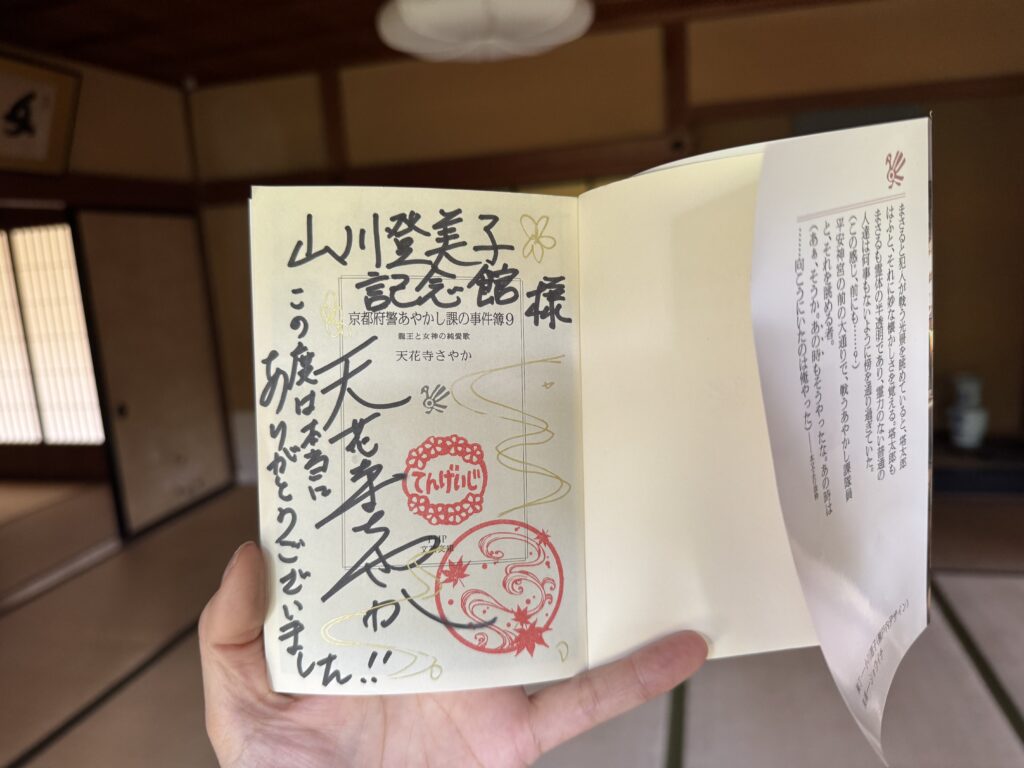 山川登美子
記念館 様
京都府警あやかし課の事件簿9
龍王と女神の純愛歌
天花寺さやか
天花寺さやか
この度は本当に
ありがとうございました!!
てんげいじ
PHP
文芸文庫
まさると犯人が戦う光景を眺めていると、塔太郎
はふと、それに妙な懐かしさを覚える。塔太郎も
まさるも霊体の半透明であり、霊力のない普通の
人達は何事もないように傍を通り過ぎていた。
(この感じ、前にも……?)
平安神宮の前の大通りで、戦うあやかし課隊員
と、それを眺める者。
(あぁ、そうか。あの時もそうやったな。あの時は
……向こうにいたのは俺やった)